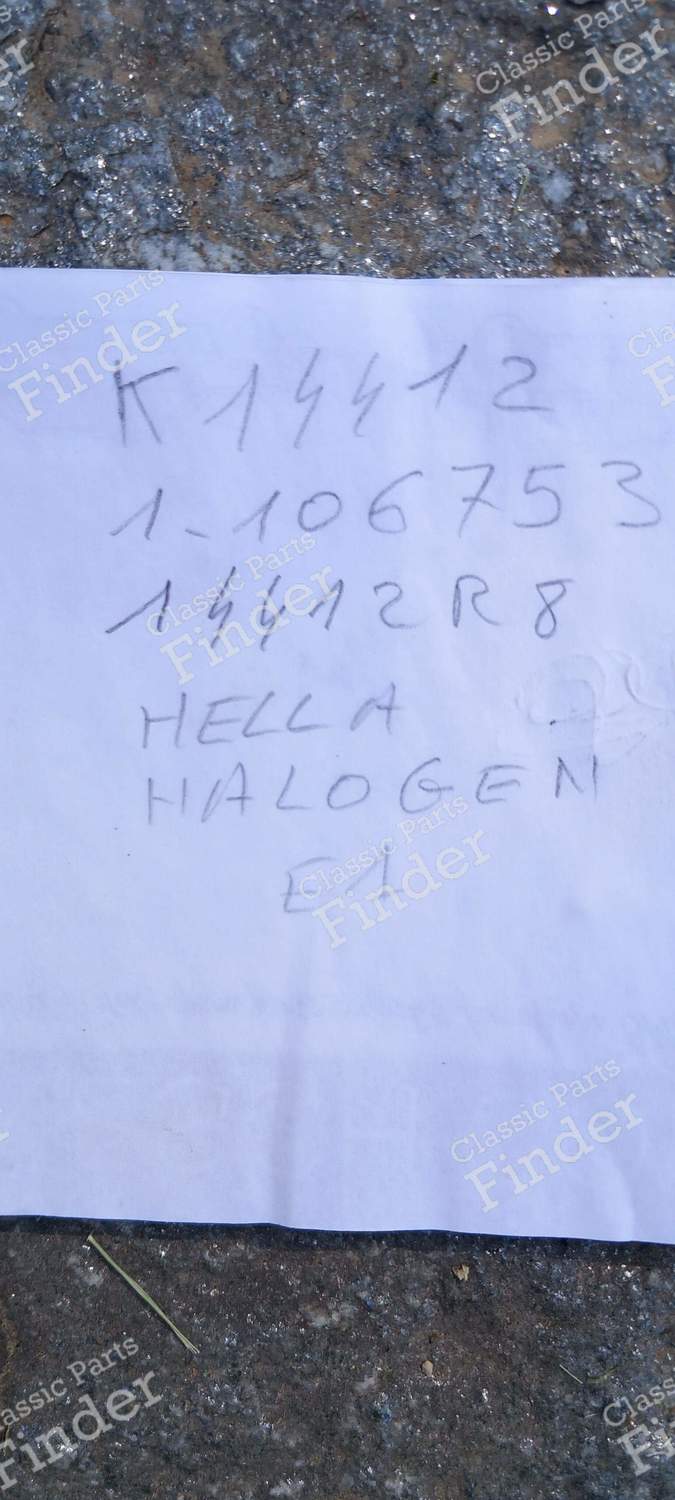 Classic Parts
Finder
Classic Parts
Finder
K 14412
1-106753
14412R8
Classic Parts
Finder
HELLA
HALOGEN
E1
Classic Parts
Finder
Classic Parts
Finder
Classic Parts
Finder
Classic Parts
Finder